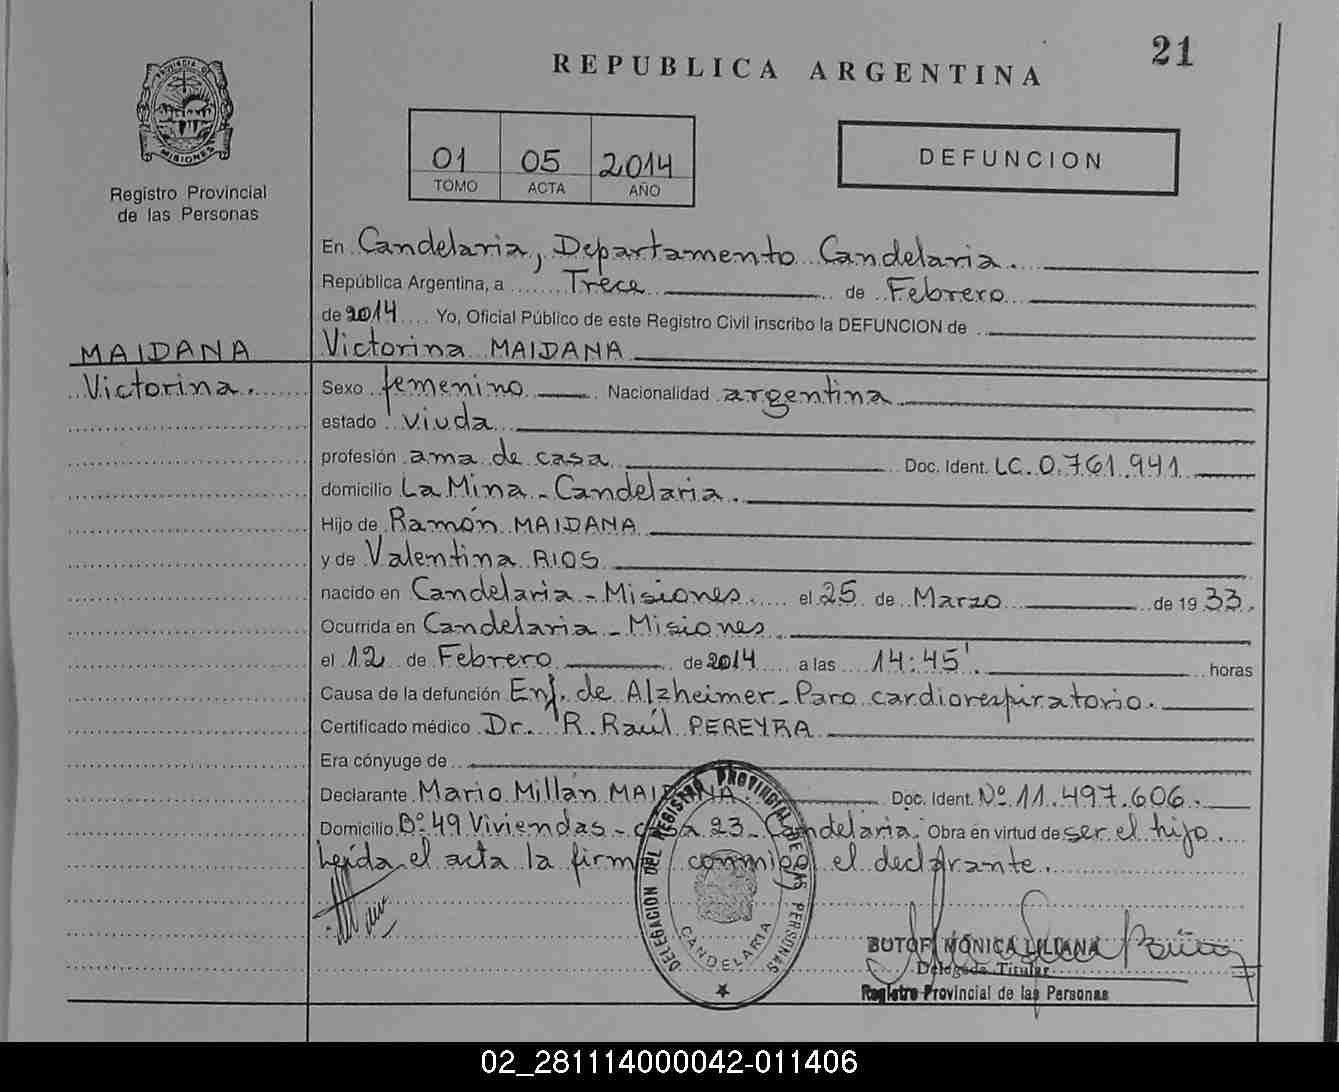 21
REPUBLICA ARGENTINA
PROVINCIA DE
MISIONES
Registro Provincial
de las Personas
01 05 2014
TOMO ACTA AÑO
DEFUNCION
En Candelaria, Departamento Candelaria.
República Argentina, a Trece de Febrero
de 2014 Yo, Oficial Público de este Registro Civil inscribo la DEFUNCION de
MAIDANA Victorina MAIDANA
Victorina. Sexo femenino Nacionalidad argentina
estado viuda
profesión ama de casa Doc. Ident. LC. 0.761.941
domicilio La Mina - Candelaria.
Hijo de Ramón MAIDANA
y de Valentina RIOS
nacido en Candelaria - Misiones el 25 de Marzo de 1933.
Ocurrida en Candelaria - Misiones
el 12 de Febrero de 2014 a las 14:45'. horas
Causa de la defunción Enf. de Alzheimer - Paro cardiorespiratorio.
Certificado médico Dr. R. Raúl PEREYRA
Era cónyuge de
Declarante Mario Millán MAIDANA. Doc. Ident. Nº 11.497.606.
Domicilio Bº 49 Viviendas - casa 23 - Candelaria. Obra en virtud de ser el hijo.
Leída el acta la firma conmigo el declarante.
DELEGACION DEL REGISTRO PROVINCIAL DE LAS PERSONAS
CANDELARIA
BUTOF MÓNICA LILIANA
Delegada Titular
Registro Provincial de las Personas
02_281114000042-011406